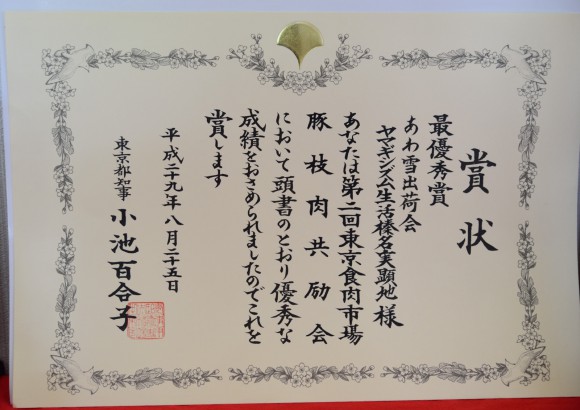 賞状
最優秀賞
あわ雪出荷会
ヤマギシズム生活榛名実顕地様
あなたは第二回東京食肉市場
豚枝肉共励会
において頭書のとおり優秀な
成績をおさめられましたのでこれを
賞します
平成二十九年八月二十五日
東京都知事 小池百合子